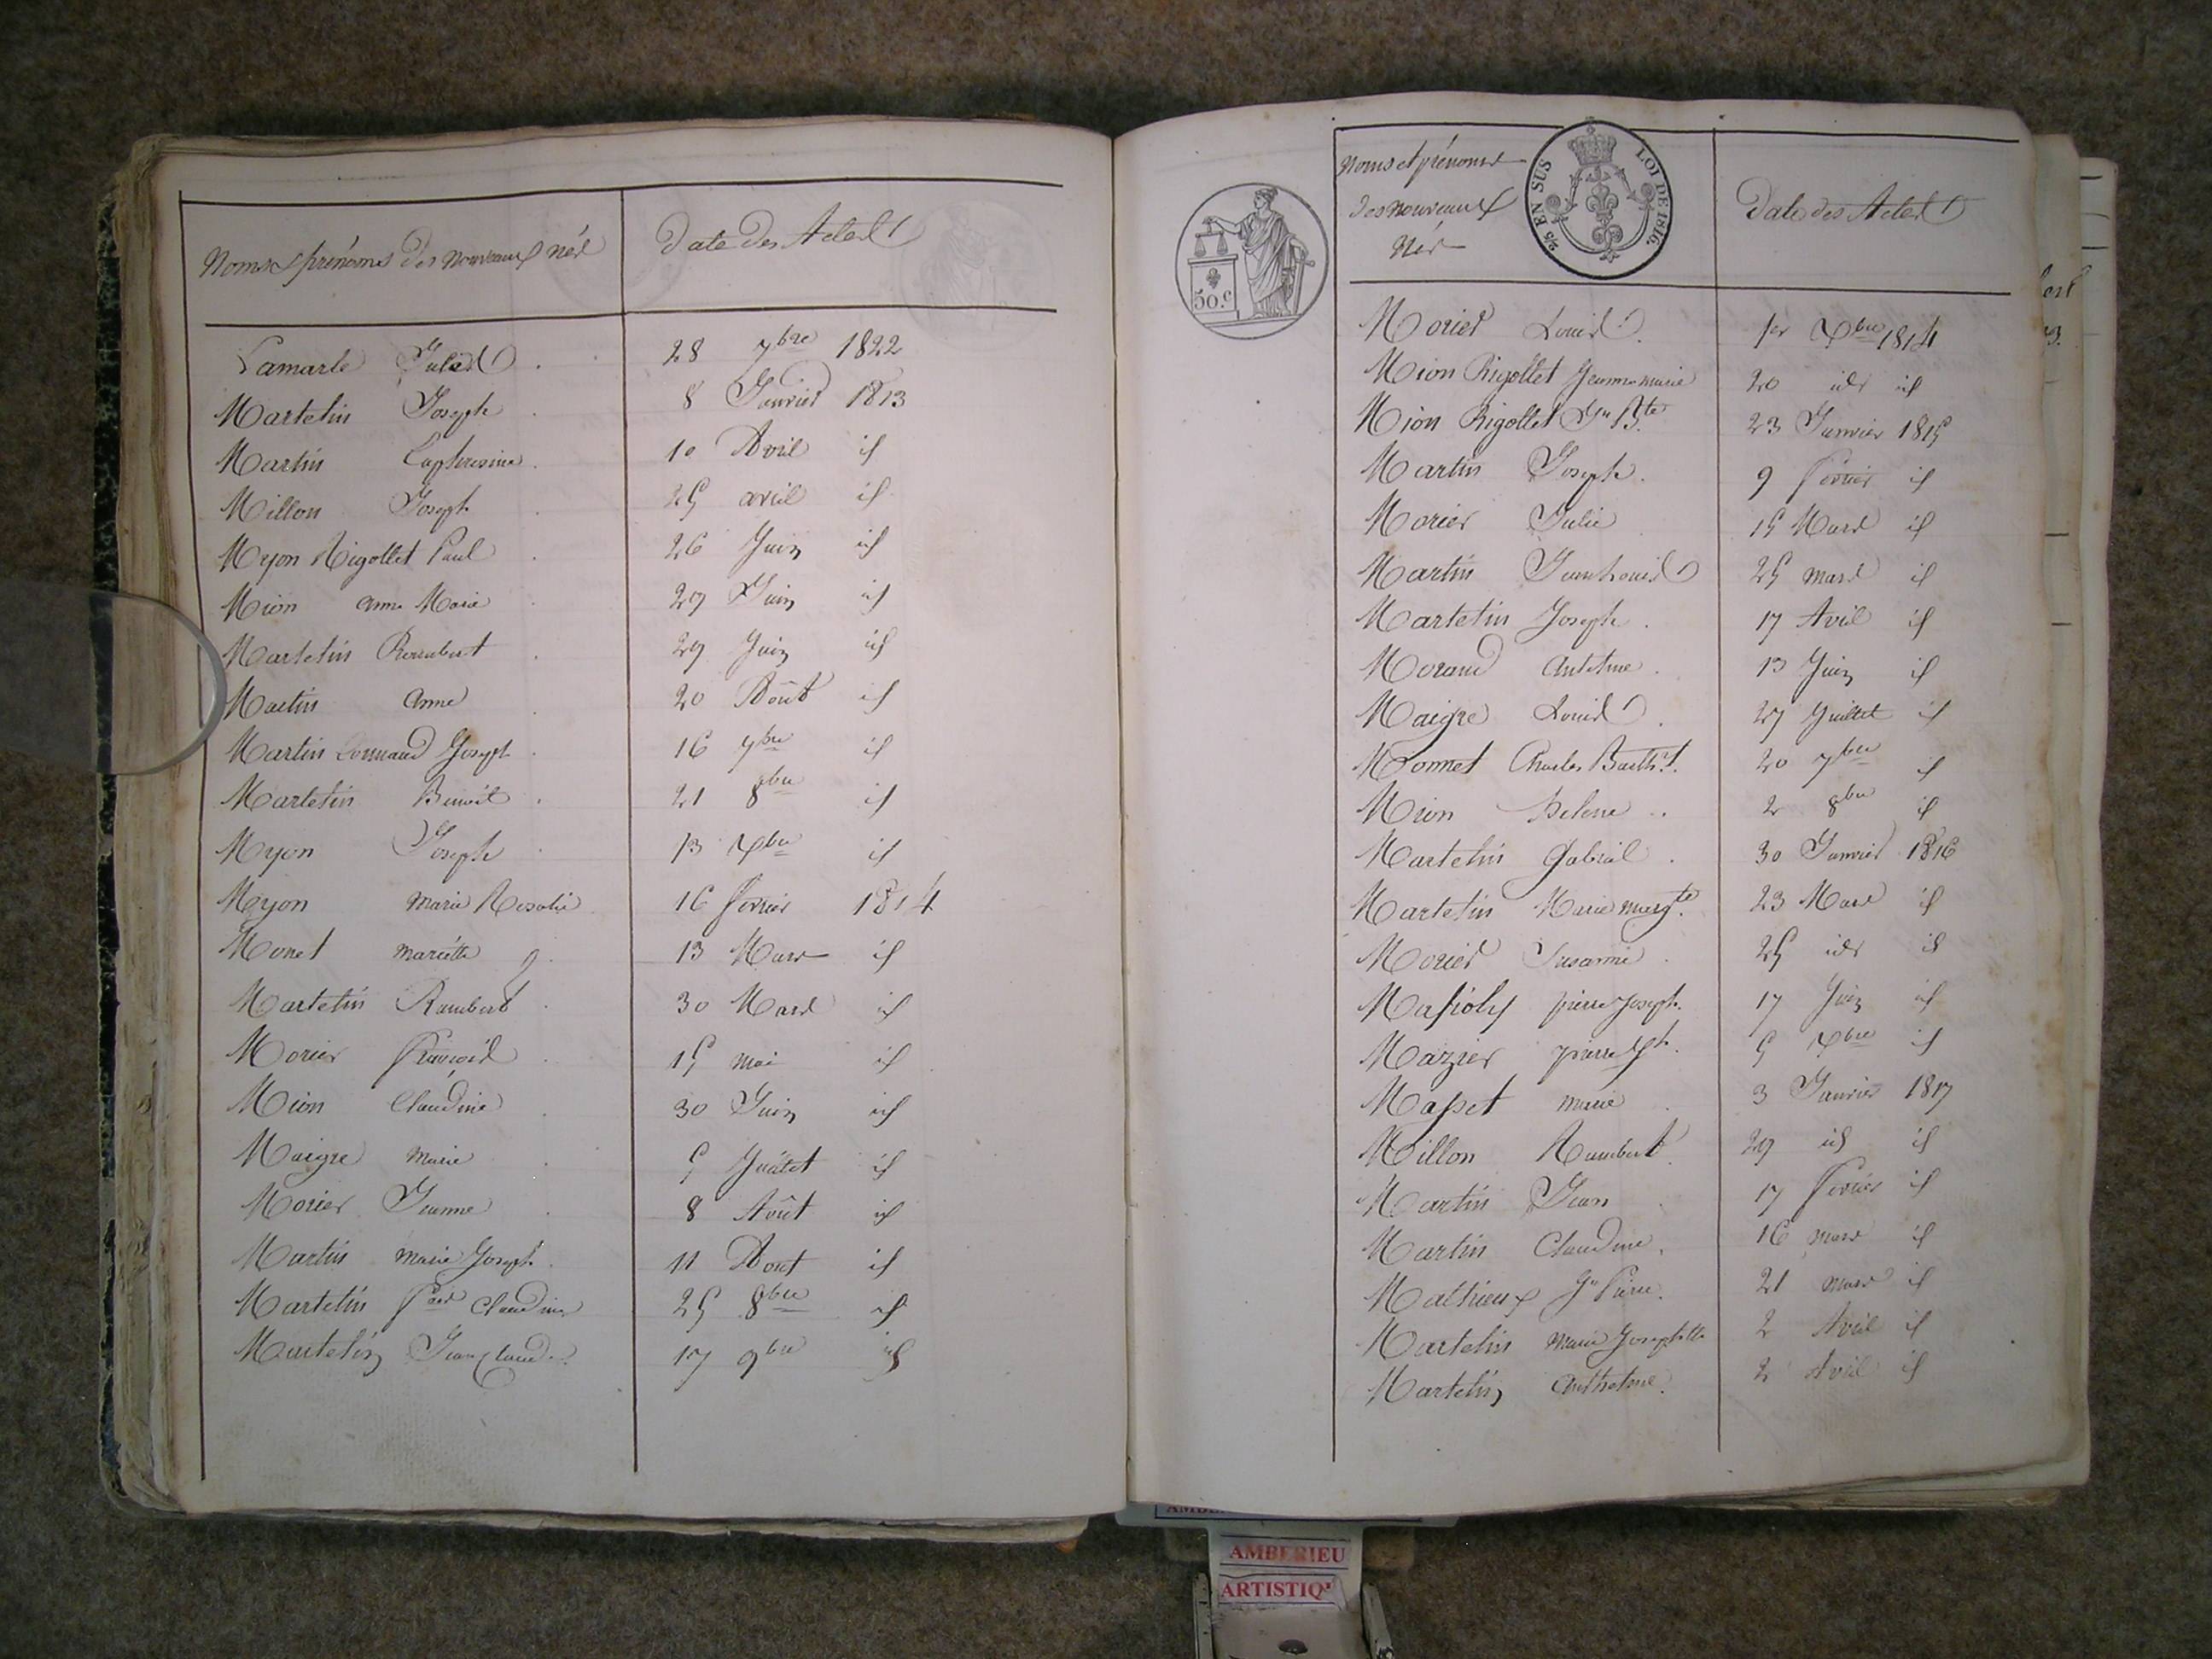 Noms et prénoms des nouveaux nés
Date des Actes
Lamarle Jules . 28 7bre 1822
Martelin Joseph . 8 Janvier 1813
Martin Euphrosine . 10 Avril id
Millon Joseph . 25 avril id
Myon Rigollet Paul . 26 Juin id
Mion anne Marie . 29 Juin id
Martelin Rembert . 29 Juin id
Martin anne . 20 Août id
Martin Joseph . 16 7bre id
Martelin Benoit . 21 8bre id
Myon Joseph . 13 Xbre id
Myon Marie Rosalie 16 février 1814
Monet Mariette . 13 Mars id
Martelin Rambert . 30 Mars id
Morier François . 15 mai id
Mion Claudine . 30 Juin id
Maigre Marie . 5 Juillet id
Morier Jeanne . 8 Août id
Martin Marie Joseph . 11 Aout id
Martelin Claudine 25 8bre id
Martelin Jean Claude . 17 9bre id
50.c
Noms et prénoms
des nouveaux
Nés
2/5 EN SUS LOI DE 1816.
Date des Actes
Morier Louis . 1er Xbre 1814
Mion Rigollet Jeanne marie 20 id id
Mion Rigollet Jn Bte 23 Janvier 1815
Martin Joseph . 9 février id
Morier Julie . 15 Mars id
Martin Jean Louis 25 mars id
Martelin Joseph . 17 Avril id
Morand Antelme . 13 Juin id
Maigre Louis . 27 Juillet id
Monnet Charles Bartht. 20 7bre id
Mion Helene .. 2 8bre id
Martelin Gabriel . 30 Janvier 1816
Martelin Marie Margte. 23 Mars id
Morier Susanne . 25 id id
Massioly pierre Joseph . 17 Juin id
Mazier pierre Jph . 5 Xbre id
Masset marie . 3 Janvier 1817
Millon Rambert . 29 id id
Martin Jean . 17 février id
Martin Claudine . 16 mars id
Mathieux Jn Pierre . 21 mars id
Martelin Marie Josephte 2 Avril id
Martelin Anthelme . 2 Avril id
AMBERIEU
ARTISTIQ